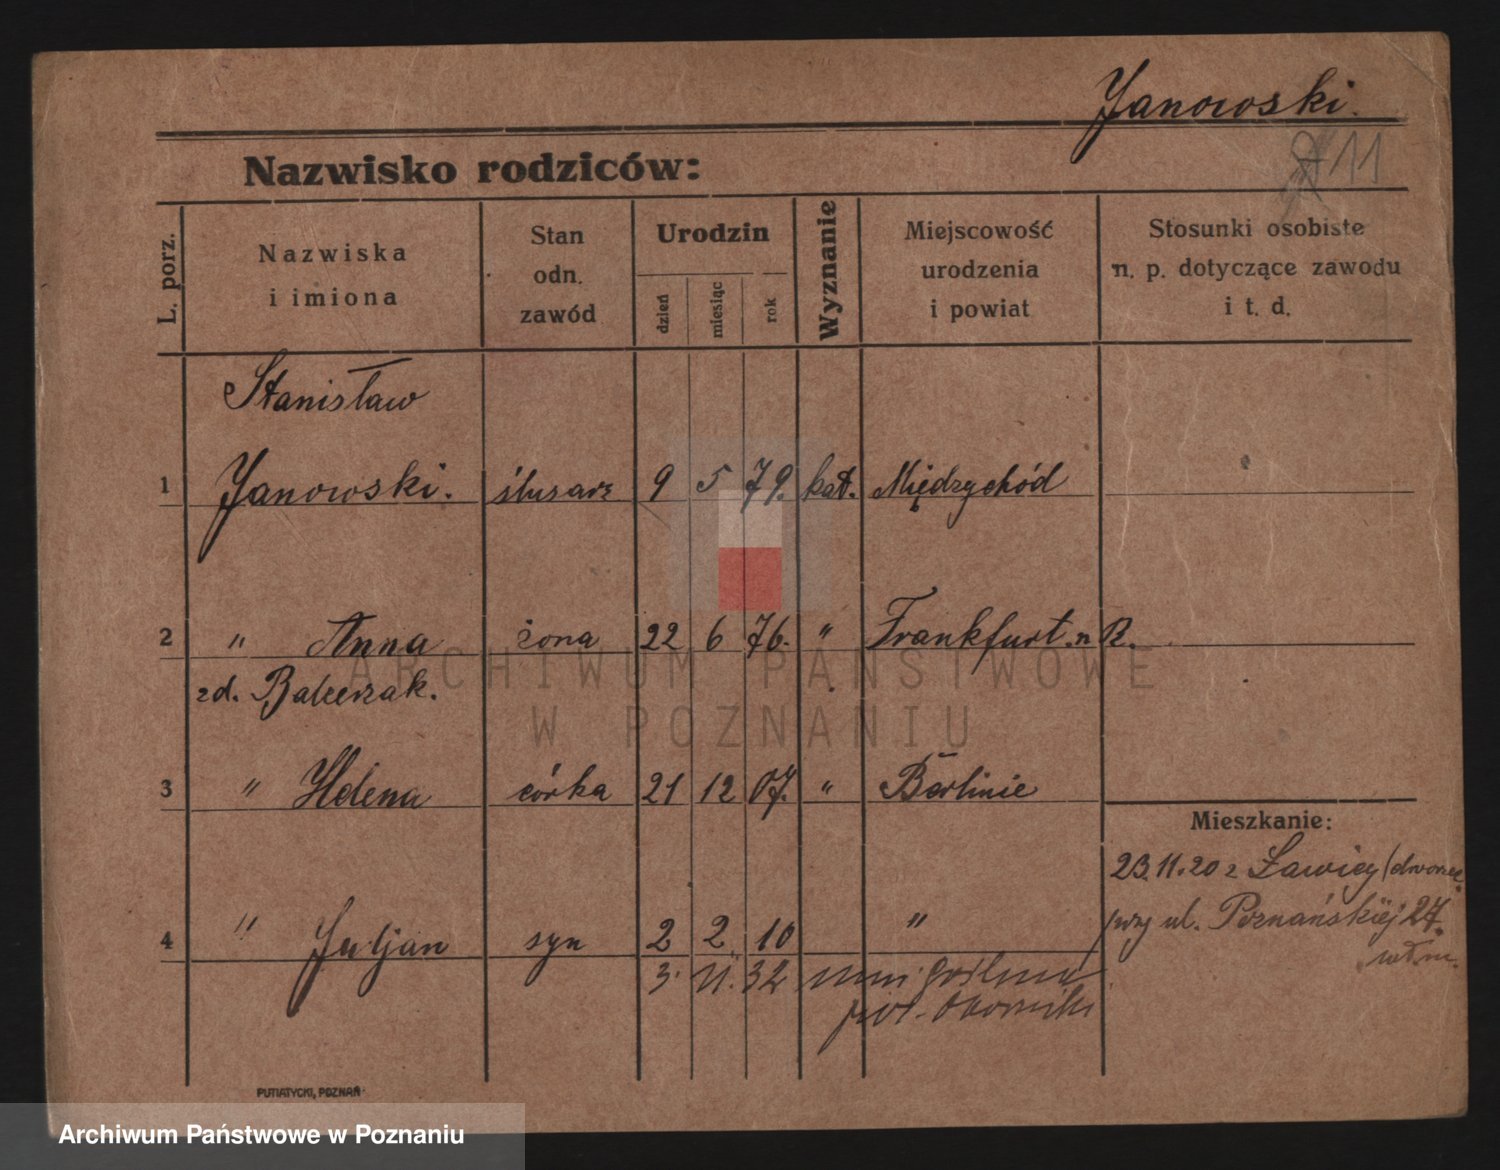 Janowski.
11
Nazwisko rodziców:
L. porz.
Nazwiska
i imiona
Stan
odn.
zawód
Urodzin
dzień
miesiąc
rok
Wyznanie
Miejscowość
urodzenia
i powiat
Stosunki osobiste
n. p. dotyczące zawodu
i t. d.
Stanisław
1 Janowski. ślusarz 9 5 79. kat. Międzychód
2 " Anna żona 22 6 76. " Frankfurt. n R.
zd. Balcerzak.
3 " Helena córka 21 12 07. " Berlinie
Mieszkanie:
23.11.20 z Ławicy (dworzec
przy ul. Poznańskiej 27.
4 " Juljan syn 2 2 10 "
3. 11. 32 Goślina
pow. Oborniki
PUTIATYCKI, POZNAŃ
ARCHIWUM PAŃSTWOWE
W POZNANIU
Archiwum Państwowe w Poznaniu